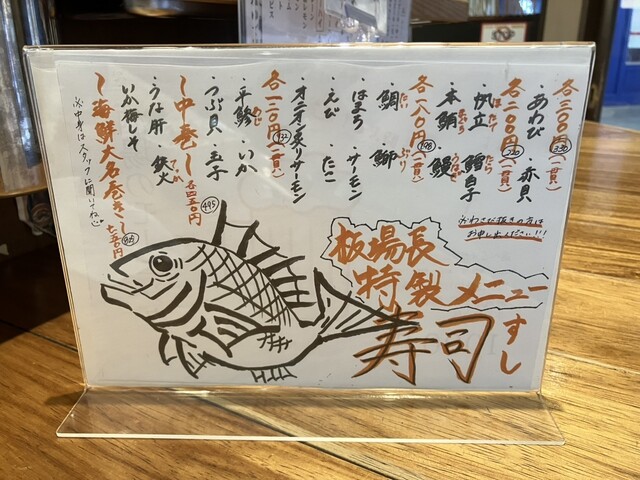 各三〇〇円(一貫)
330
・あわび ・赤貝
各二〇〇円(一貫)
220
・帆立 ・鱈白子
ほたて たら
・本鮪 ・鰻
まぐろ うなぎ
各一八〇円(一貫)
198
・鯛 ・鰤
たい ぶり
・はまち ・サーモン
・えび ・たこ
・オニオン炙りサーモン
各一二〇円(一貫)
132
・平鯵 ・いか
あじ
・つぶ貝 ・玉子
〜中巻〜 各四五〇円
495
・うな肝 ・鉄火
てっか
・いか梅しそ
〜海鮮大名巻き〜 七五〇円
825
※中身はスタッフに聞いてね
※わさび抜きの方は
お申し出ください!!!
板場長
特製メニュー
寿司
すし